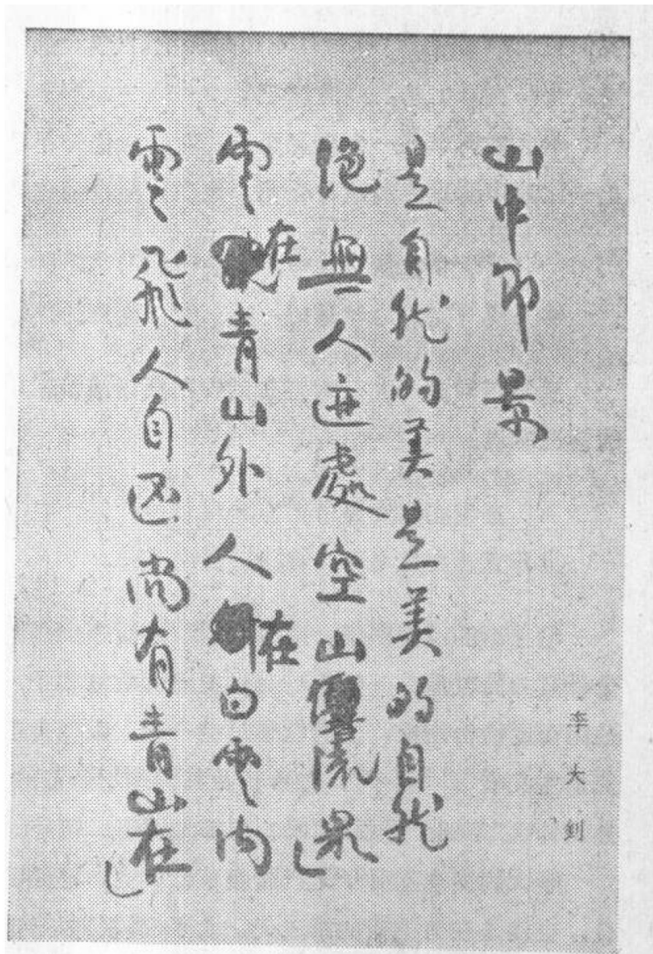 李大釗
山中即景
是自然的美是美的自然
絕無人迹處空山響流泉
雲在青山外人在白雲內
雲飛人自还尚有青山在